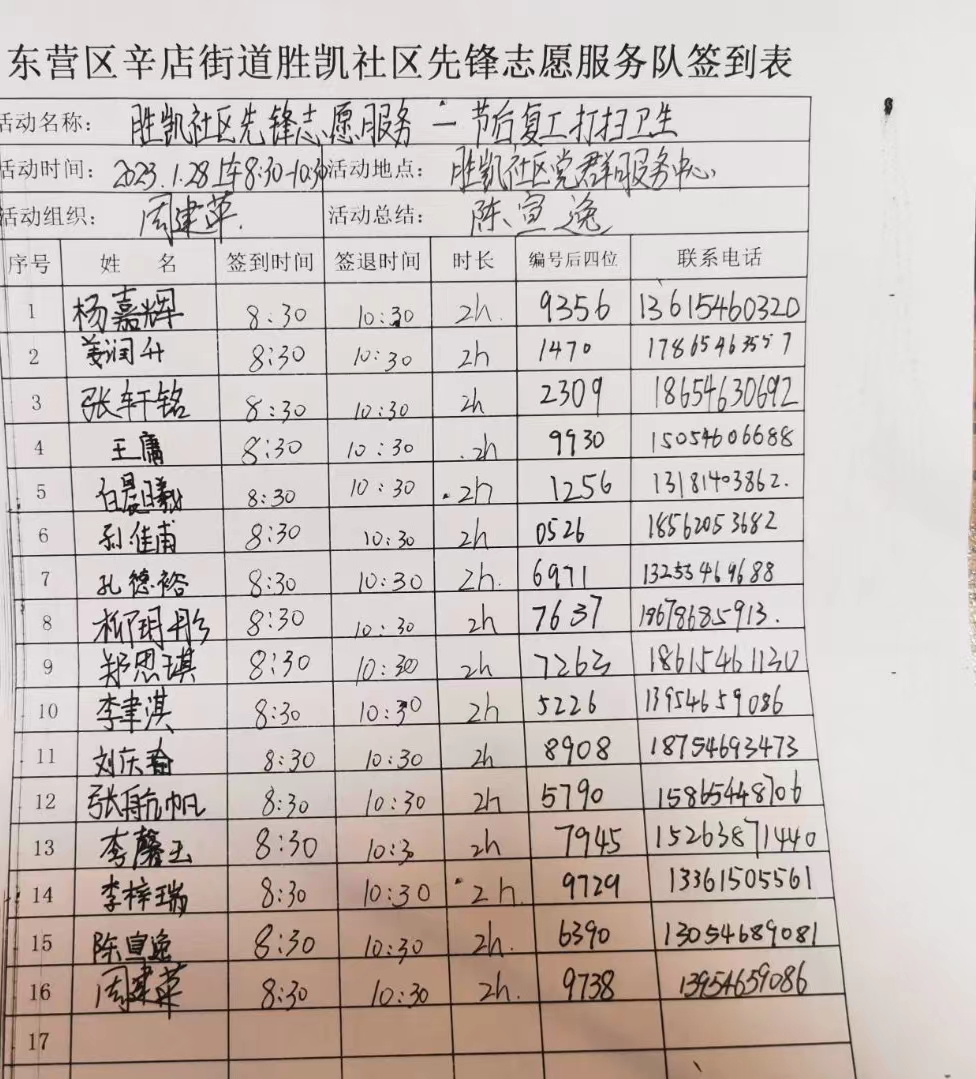 东营区辛店街道胜凯社区先锋志愿服务队签到表
活动名称： 胜凯社区先锋志愿服务 — 节后复工打扫卫生
活动时间： 2023.1.28上午8:30-10:30 活动地点： 胜凯社区党群服务中心
活动组织： 周建苹 活动总结： 陈宣逸
序号 姓 名 签到时间 签退时间 时长 编号后四位 联系电话
1 杨嘉辉 8:30 10:30 2h. 9356 13615460320
2 姜润升 8:30 10:30 2h 1470 17865463557
3 张轩铭 8:30 10:30 2h 2309 18654630692
4 王庸 8:30 10:30 2h 9930 15054606688
5 白晨曦 8:30 10:30 2h 1256 13181403862.
6 孙佳甫 8:30 10:30 2h 0526 18562053682
7 孔德裕 8:30 10:30 2h. 6971 13255469688
8 柳玥彤 8:30 10:30 2h 7637 18678685913.
9 郑思琪 8:30 10:30 2h 7263 18615461130
10 李聿淇 8:30 10:30 2h 5226 13954659086
11 刘庆 8:30 10:30 2h 8908 18754693473
12 张航帆 8:30 10:30 2h 5790 15865448706
13 李馨玉 8:30 10:3 2h 7945 15263871440
14 李梓瑞 8:30 10:30 2h. 9729 13361505561
15 陈宣逸 8:30 10:30 2h. 6390 13054689081
16 周建苹 8:30 10:30 2h. 9738 13954659086
17